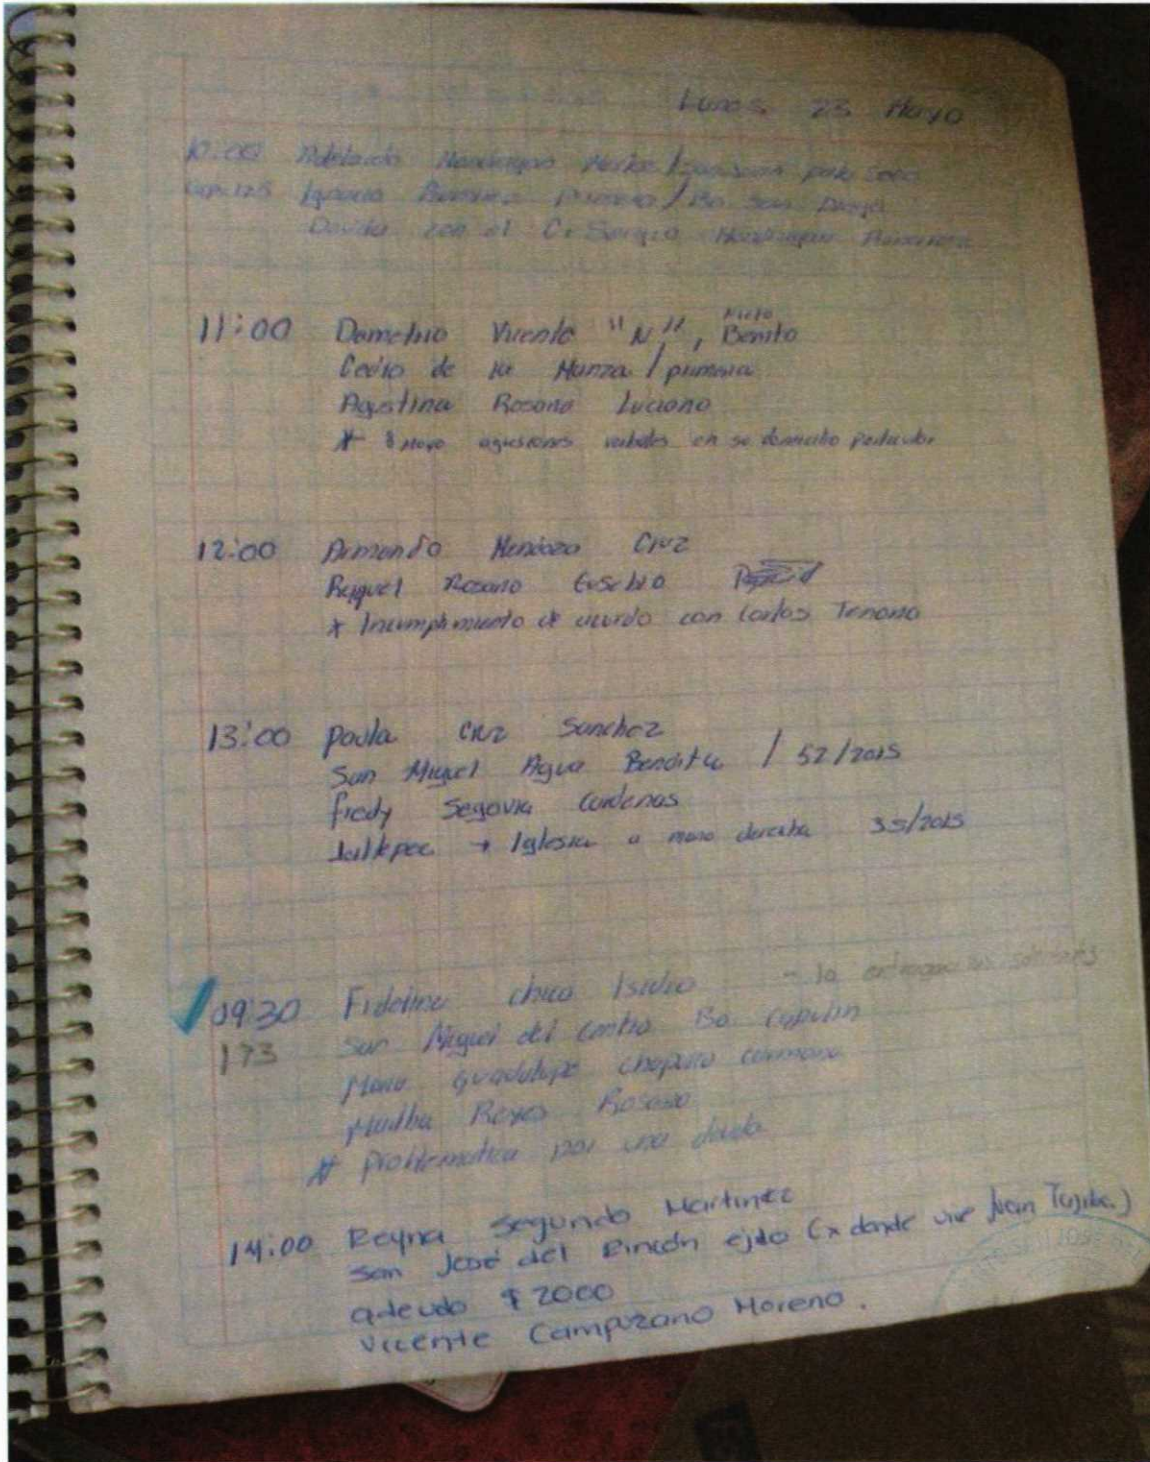 Lunes 23 Mayo
10:00 Adelaido Mondragon / palo seco
Ignacio / Bo San Diego
con el C. Sergio Mondragon
11:00 Demetrio Vicente "N", Nieto Benito
Cedro de la Manza / primera
Agustina Rosano Luciano
* agresiones verbales en su domicilio particular
12:00 Armando Mendoza Cruz
Raquel Rosano Eusebio
* Incumplimiento de acuerdo con Carlos Tenorio
13:00 Paula Cruz Sanchez
San Miguel Agua Bendita / 52/2015
fredy Segovia Cardenas
Jaltepec + Iglesia a mano derecha 35/2015
09:30 Fidelina chico Isidro - la
173 San Miguel del centro Bo Capulin
Maria Guadalupe
Martha Reyes Rosano
* Problematica por una deuda
14:00 Reyna Segundo Martinez
San José del Rincón ejido (x donde vive Juan
adeudo $2000
Vicente Campuzano Moreno.